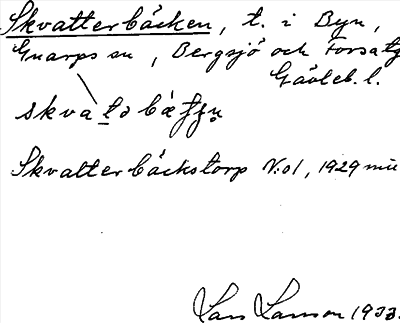 Skvatterbäcken, t. i Byn,
Gnarps sn, Bergsjö och Forsa tg
Gävleb. l.
skvat
Skvatterbäckstorp N:o1, 1929
Lars Larson 1933.